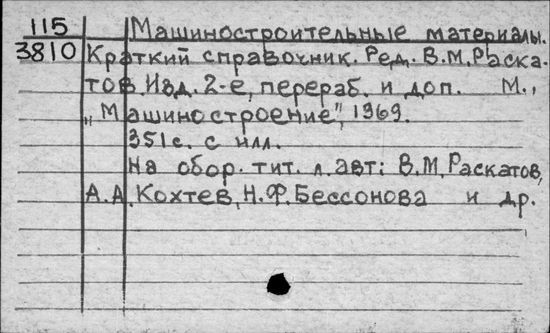 115 Машиностроительные материалы.
3810 Краткий справочник. Ред. В.М.Раска-
тов. Изд. 2-е, перераб. и доп. М.,
„Машиностроение", 1969.
351с. с илл.
На обор. тит. л. авт: В.М.Раскатов,
А.А.Кохтев, Н.Ф.Бессонова и др.